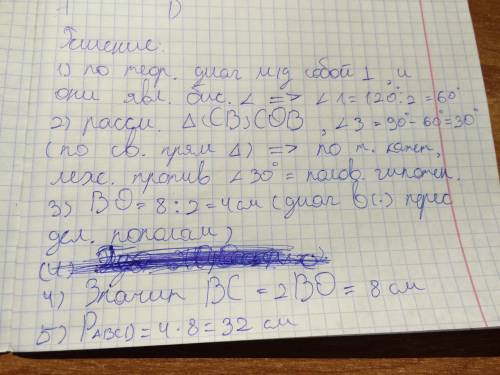 1)
Решение.
1) по теор. диаг м/д собой ⊥, и
они явл. бис. ∠ => ∠1=120°:2=60°
2) рассм. Δ(CB)COB, ∠3=90°-60°=30°
(по св. прям Δ) => по т. катет,
леж. против ∠30°=полов. гипотен.
3) BO=8:2=4см (диаг в(·) перес
дел. пополам)
4) Значит BC = 2BO = 8 см
5) PABCD=4·8=32 см